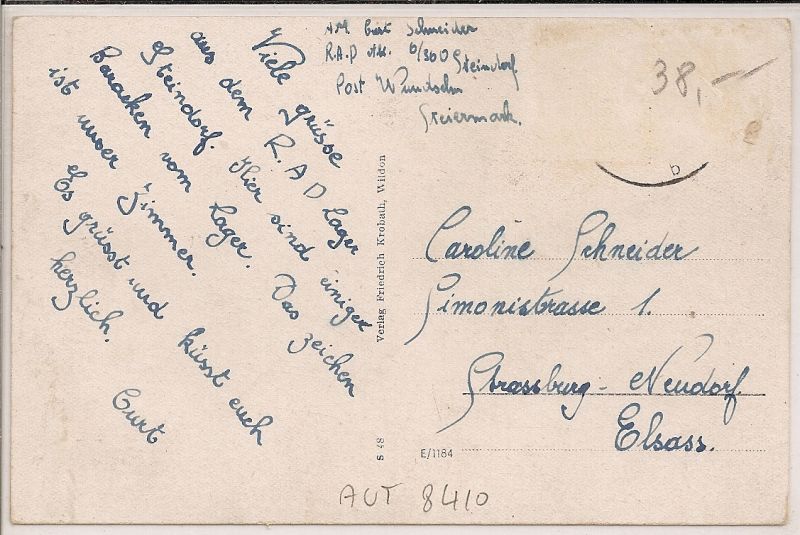 AM. Curt Schneider
R.A.D Abt. 6/360 Steindorf.
Post Wundschu
Steiermark.
38,—
e
b
Viele grüsse
aus dem R.A D Lager
Steindorf. Hier sind einige
Baracken vom Lager. Das zeichen
ist unser Zimmer.
Es grüsst und küsst euch
herzlich.
Curt
Verlag Friedrich Krobath, Wildon
S 48
Caroline Schneider
Simonistrasse 1.
Strassburg-Neudorf.
Elsass.
E/1184
AUT 8410